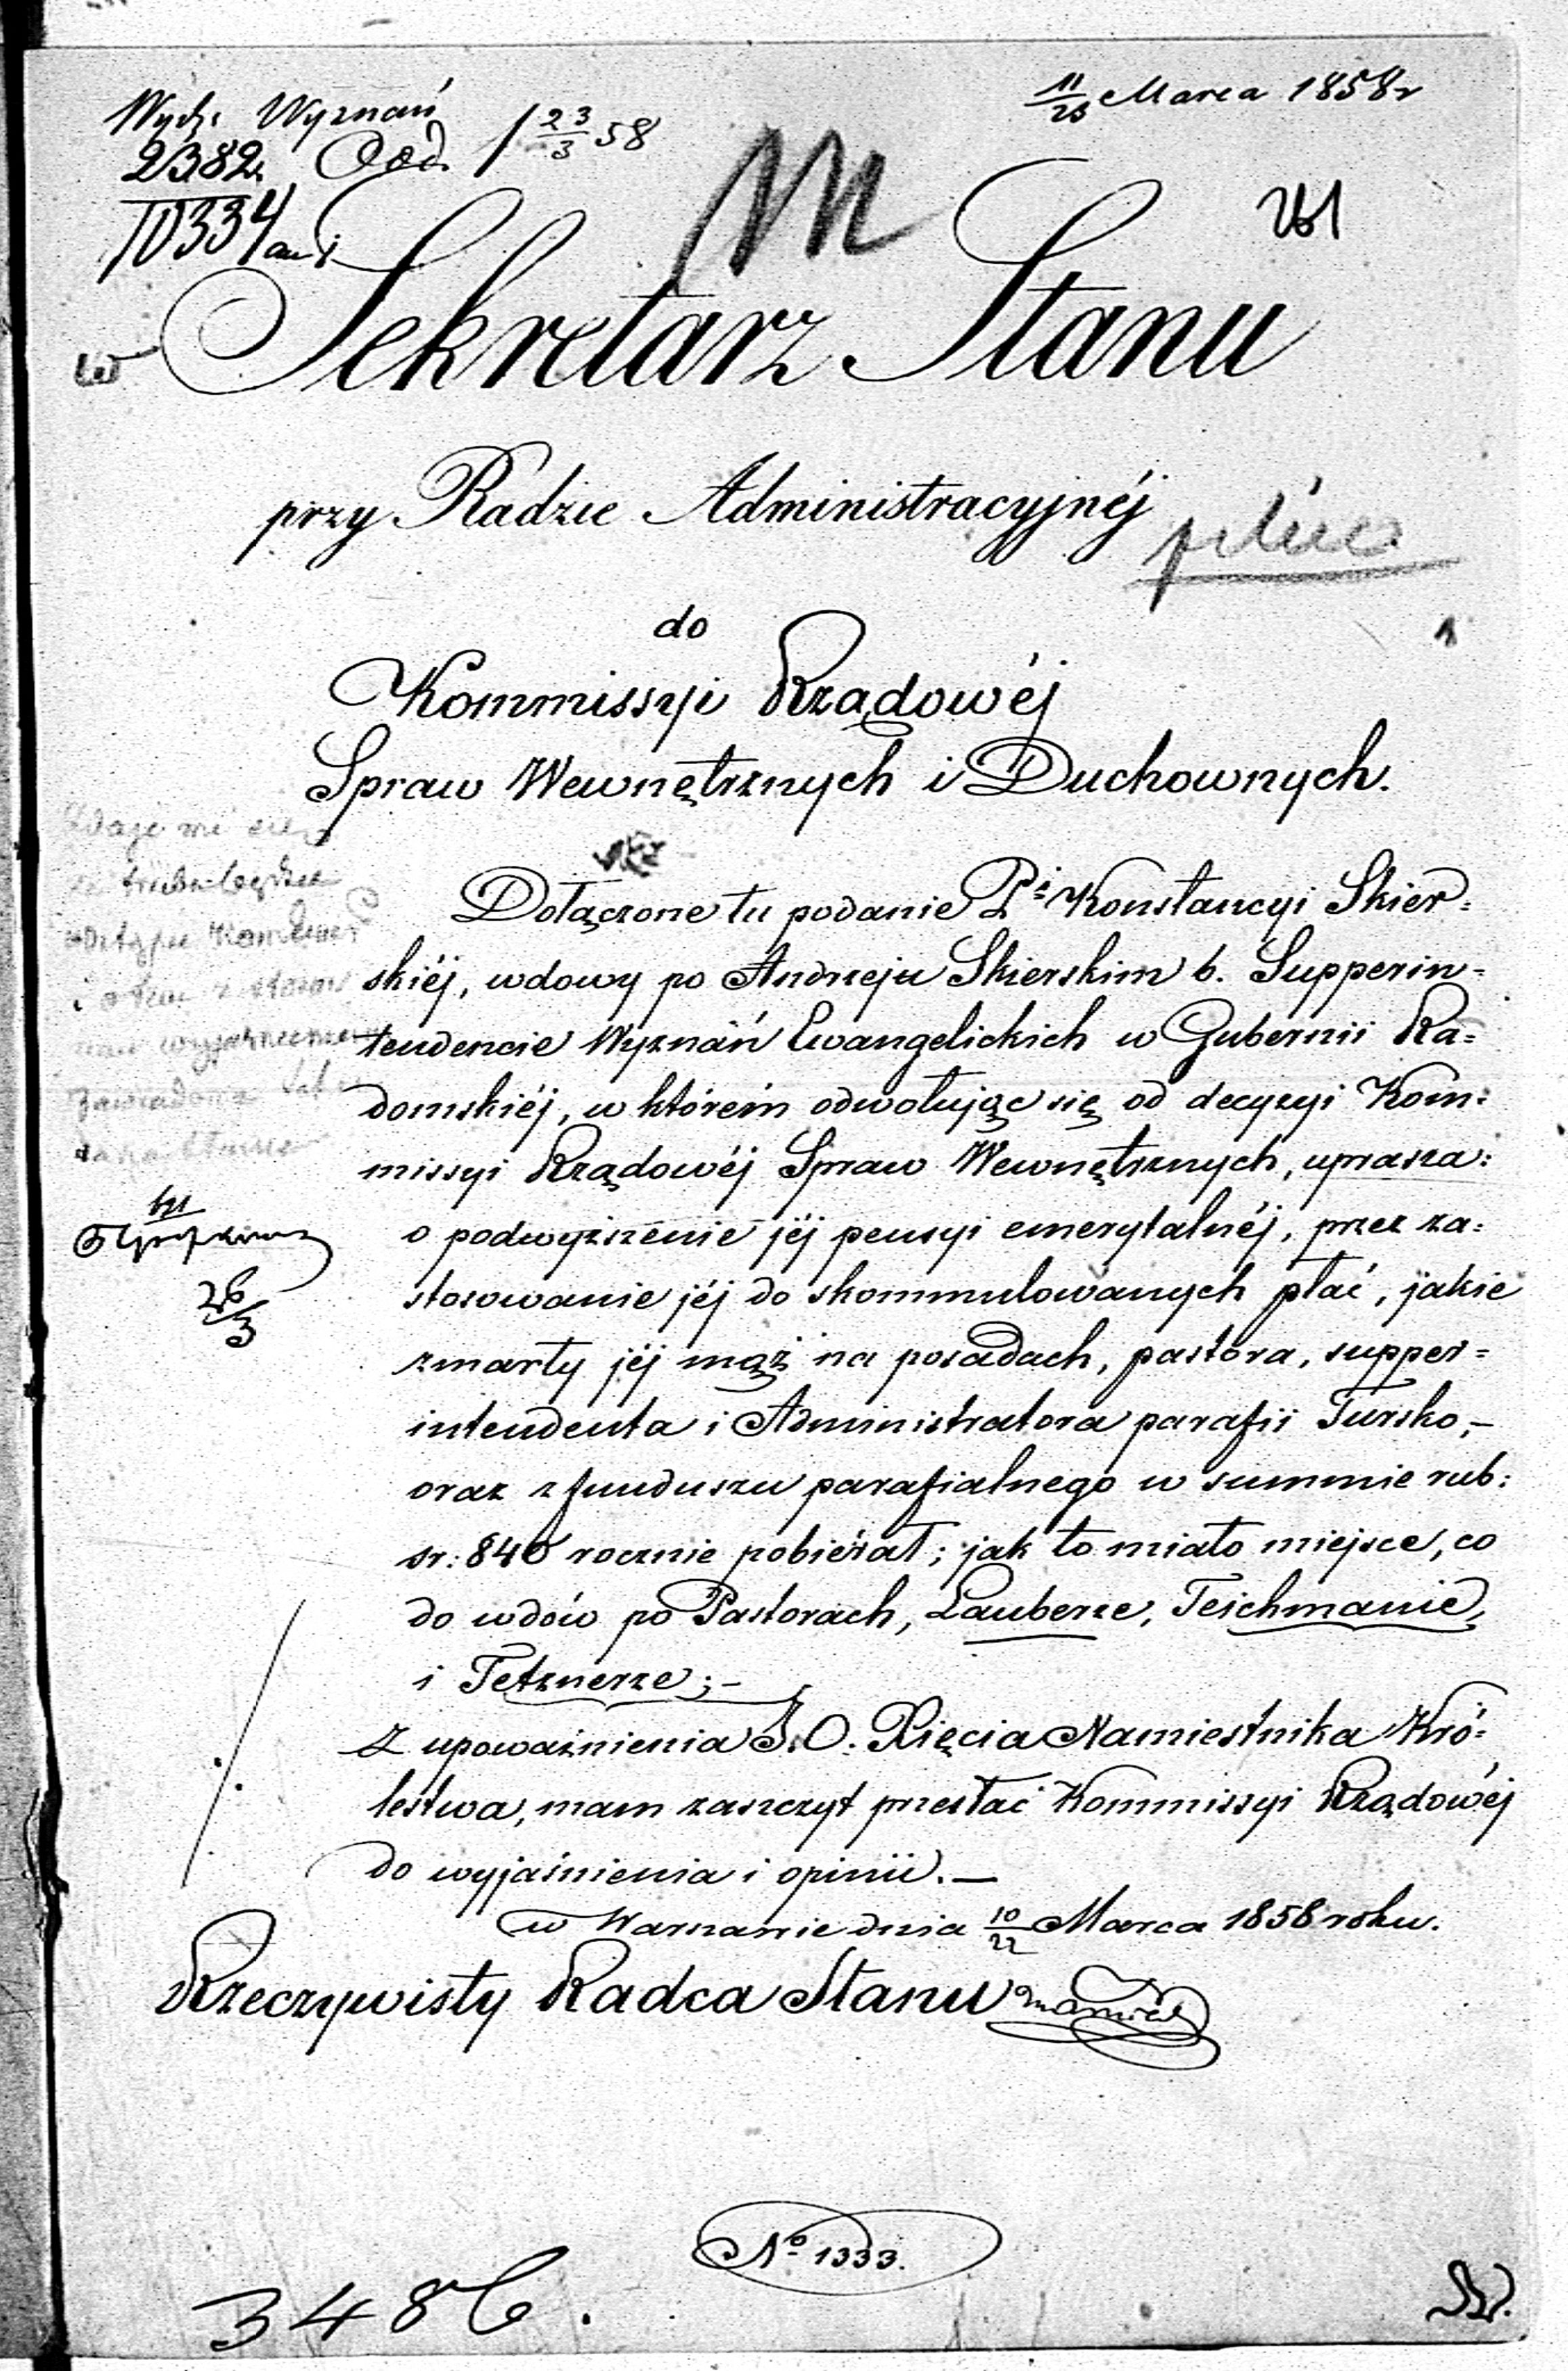 Wydz. Wyznań
11/23 Marca 1858 r
2382. Odd. 1 23/3 58
10334
Sekretarz Stanu
przy Radzie Administracyjnéj
pilne
do
1
Kommissyi Rządowéj
Spraw Wewnętrznych i Duchownych.
Dołączone tu podanie P.i Konstancyi Skier=
skiéj, wdowy po Andrzeju Skierskim b. Supperin=
tendencie Wyznań Ewangelickich w Gubernii Ra=
domskiéj, w którém odwołując się od decyzyi Kom=
missyi Rządowéj Spraw Wewnętrznych, uprasza:
o podwyższenie jéj pensyi emerytalnéj, przez za=
stosowanie jéj do skommulowanych płać, jakie
zmarły jéj mąż na posadach, pastora, supper=
intendenta i Administratora parafii Tursko, –
oraz z funduszu parafialnego w summie rub:
sr: 840 rocznie pobiérał; jak to miało miejsce, co
do wdów po Pastorach, Lauberze, Teichmanie,
i Tetznerze; –
Z upoważnienia J.O. Xięcia Namiestnika Kró=
lestwa, mam zaszczyt przesłać Kommissyi Rządowéj
do wyjaśnienia i opinii. —
w Warszawie dnia 10/22 Marca 1858 roku.
Rzeczywisty Radca Stanu
Zdaje mi się
26/3
№ 1333.
3486.